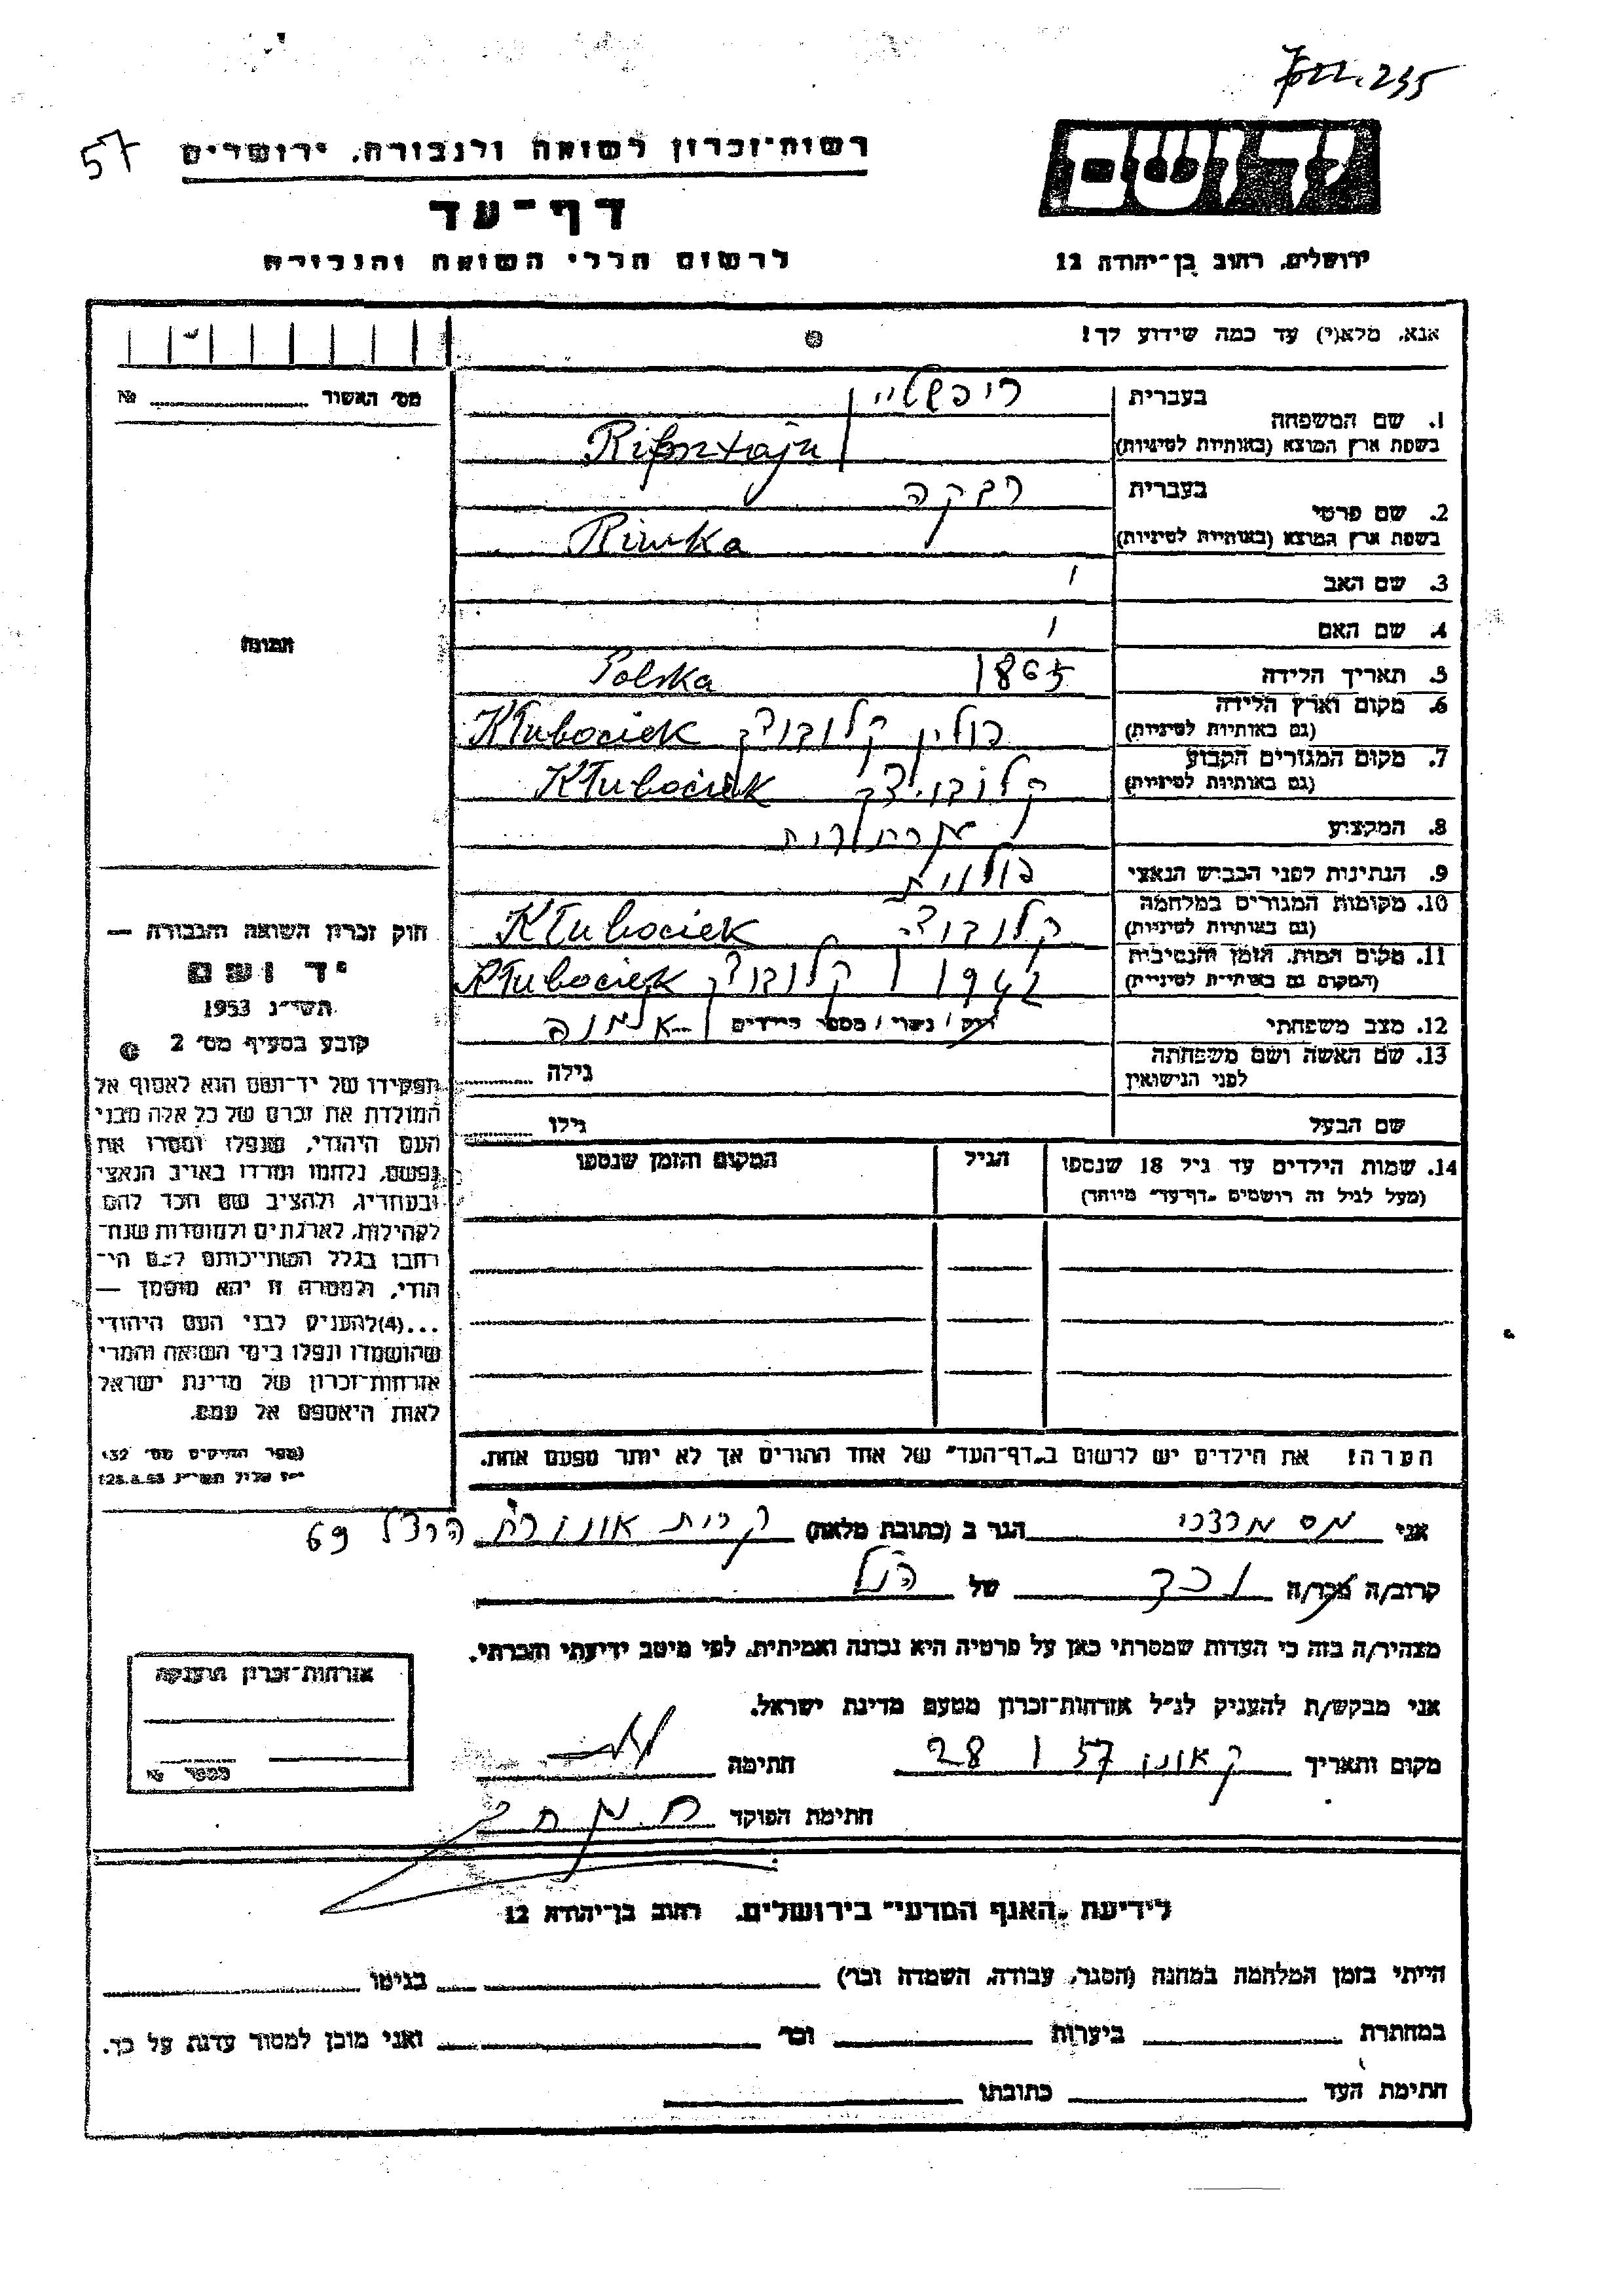 235
57
רשות־זכרון לשואה ולגבורה, ירושלים
יד ושם
דף־עד
לרשום חללי השואה והגבורה
ירושלים, רחוב בן־יהודה 12
אנא, מלא(י) עד כמה שידוע לך!
מס׳ האשור № 
בעברית ריפשטיין
1. שם המשפחה
בשפת ארץ המוצא (באותיות לטיניות) Rifsztajn
בעברית רבקה
2. שם פרטי
בשפת ארץ המוצא (באותיות לטיניות) Riwka
3. שם האב
4. שם האם
תמונה
5. תאריך הלידה 1865
6. מקום וארץ הלידה Polska
(גם באותיות לטיניות) פולין קלובוצק Kłubociek
7. מקום המגורים הקבוע
(גם באותיות לטיניות) קלובוצק Kłubociek
8. המקצוע
9. הנתינות לפני הכבוש הנאצי פולנית
10. מקומות המגורים במלחמה
(גם באותיות לטיניות) קלובוצק Kłubociek
11. מקום המות, הזמן והנסיבות
(המקום גם באותיות לטיניות) 1942 קלובוצק Kłubociek
12. מצב משפחתי רווק / נשוי / מספר הילדים אלמנה
13. שם האשה ושם משפחתה
לפני הנישואין גילה
שם הבעל גילו
14. שמות הילדים עד גיל 18 שנספו הגיל המקום והזמן שנספו
(מעל לגיל זה רושמים „דף־עד״ מיוחד)
חוק זכרון השואה והגבורה —
יד ושם
תשי״ג 1953
קובע בסעיף מס׳ 2
תפקידו של יד־ושם הוא לאסוף אל
המולדת את זכרם של כל אלה מבני
העם היהודי, שנפלו ומסרו את
נפשם, נלחמו ומרדו באויב הנאצי
ובעוזריו, ולהציב שם וזכר להם
לקהילות, לארגונים ולמוסדות שנח־
רבו בגלל השתייכותם לעם הי־
הודי, ולמטרה זו יהא מוסמך —
...(4)להעניק לבני העם היהודי
שהושמדו ונפלו בימי השואה והמרי
אזרחות־זכרון של מדינת ישראל
לאות היאספם אל עמם.
(ספר החוקים מס׳ 132
י״ז אלול תשי״ג 28.8.53)
הערה! את הילדים יש לרשום ב„דף־העד״ של אחד ההורים אך לא יותר מפעם אחת.
אני מס מרדכי הגר ב (כתובת מלאה) קרית אונו רח הרצל 69
קרוב/ה מכר/ה נכד של הנ״ל
מצהיר/ה בזה כי העדות שמסרתי כאן על פרטיה היא נכונה ואמיתית, לפי מיטב ידיעתי והכרתי.
אני מבקש/ת להעניק לנ״ל אזרחות־זכרון מטעם מדינת ישראל.
מקום ותאריך ק אונו 28 I 57 חתימה
חתימת הפוקד
אזרחות־זכרון הוענקה
מספר №
לידיעת „האגף המדעי״ בירושלים, רחוב בן־יהודה 12
הייתי בזמן המלחמה במחנה (הסגר, עבודה, השמדה וכו׳) בגיטו
במחתרת ביערות וכו׳ ואני מוכן למסור עדות על כך.
חתימת העד כתובתו